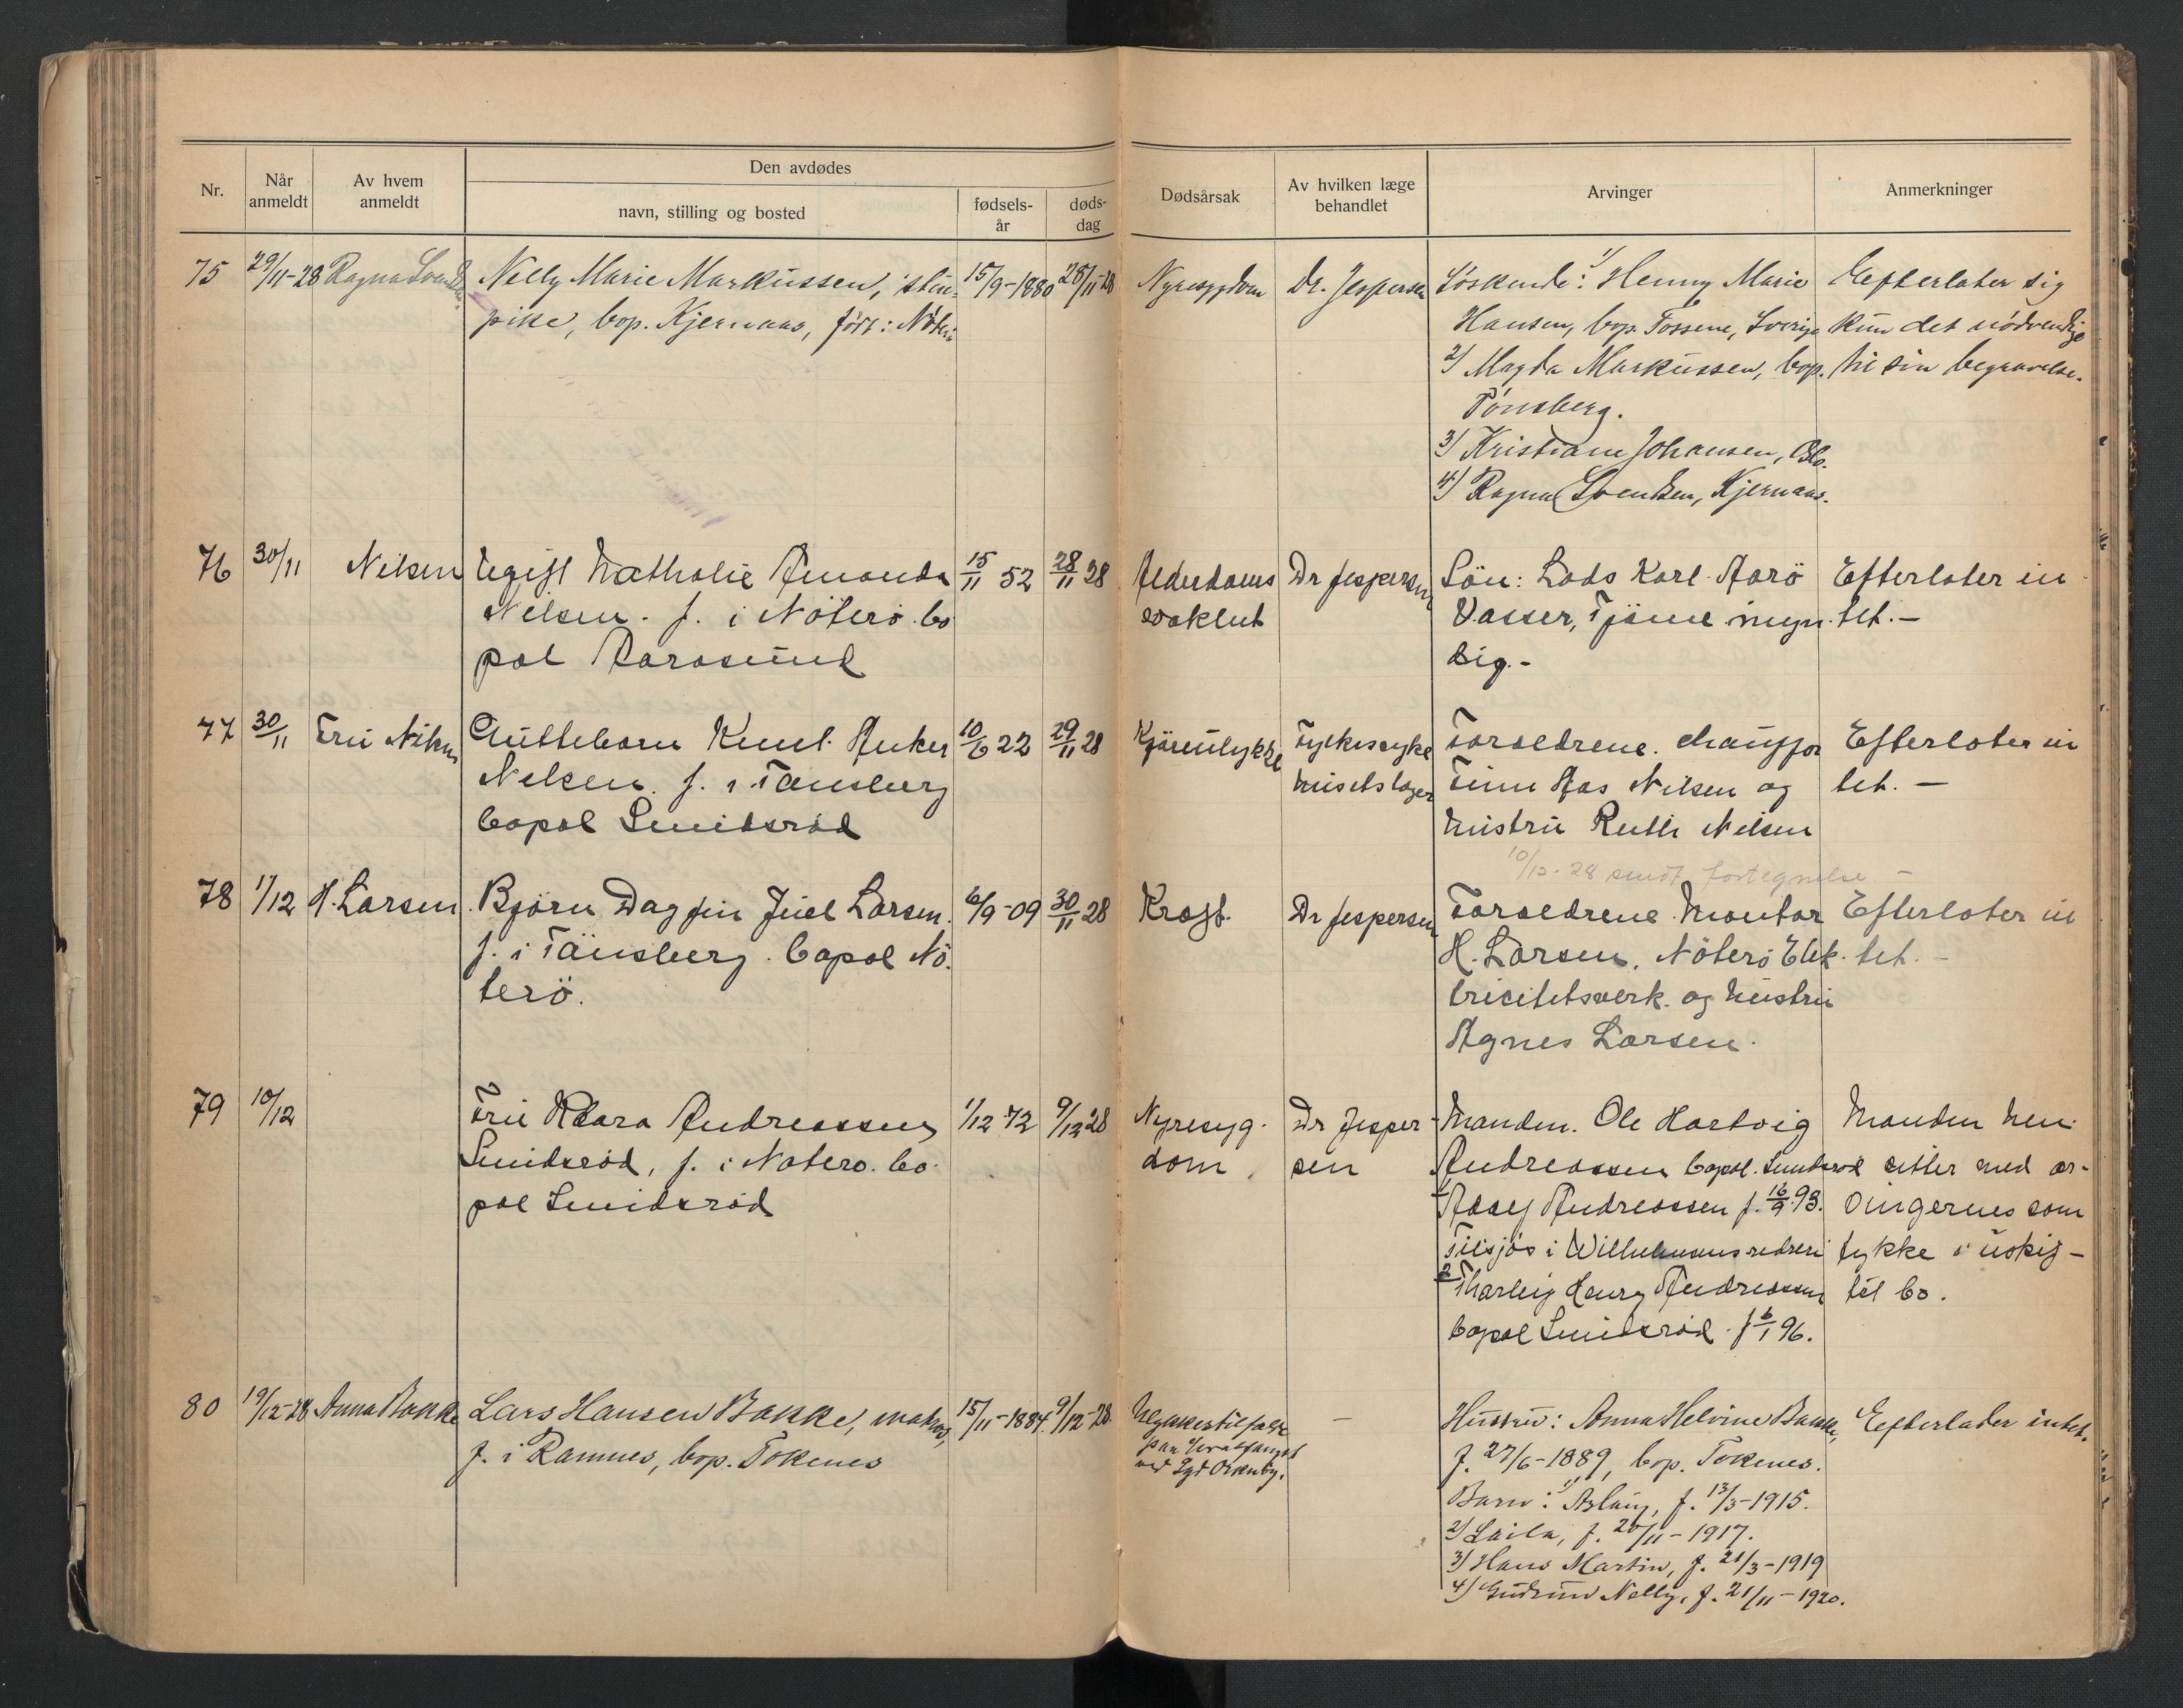 Nr.
Når anmeldt
Av hvem anmeldt
Den avdødes
navn, stilling og bosted
fødsels-år
døds-dag
Dødsårsak
Av hvilken læge behandlet
Arvinger
Anmerkninger
75 29/11-28 Ragna
Nelly Marie Markussen,
pike, bop. Kjernaas, født: Nøt.
15/9-1880 28/11-28
Nyresygdom
Dr. Jespersen
Søskende: 1/ Henny Marie
Hansen, bop. Tossene, Sverige
2/ Magda Markussen, bop.
Tønsberg.
3/ Kristiane Johansen, Oslo.
4/ Ragna Svendsen, Kjernaas.
Efterlater sig
kun det nødvendige
til sin begravelse.
76 30/11 Nilsen
Ugift Nathalie Amanda
Nilsen. f. i Nøterø. bo
pæl Aarøsund
15/11 52 28/11 28
Alderdoms
svakhet
Dr Jespersen
Søn: Lods Karl Aarø
Vasser, Tjøme myn
dig.-
Efterlater in
tet.-
77 30/11 Fru Nilsen
Guttebarn Knut Anker
Nilsen. f. i Tønsberg
bopæl Smidsrød
10/6 22 29/11 28
Kjøreulykke
Fylkessyke
husets læger
Forældrene. chauffør
Finn Aas Nilsen og
hustru Ruth Nilsen
Efterlater in
tet. -
10/12-28 sendt fortegnelse -
78 1/12 H. Larsen
Bjørn Dagfin Juel Larsen.
f. i Tønsberg. bopæl Nø.
terø.
6/9-09 30/11 28
Kræft.
Dr Jespersen
Forældrene. Montør
H. Larsen. Nøterø Elek.
tricitetsverk og hustru
Agnes Larsen.
Efterlater in
tet. -
79 10/12
Fru Klara Andreassen
Smidsrød, f. i Nøterø. bo.
pæl Smidsrød
1/12 72 9/12 28
Nyresyg.
dom
Dr Jesper-
sen
Manden. Ole Hartvig
Andreassen bopæl. Smidsrød
1 Adolf Andreassen f. 16/9 93.
Tilsjøs i Wilhelmsens rederi
2 Thorleif Henry Andreassen
bopæl Smidsrød. f 6/1 96.
Manden hen
sitter med ar-
vingernes sam
tykke i uskif-
tet bo.
80 19/12-28 Anna Bakke
Lars Hansen Bakke,
f. i Ramnes, bop. Tokenes
15/11-1884. 9/12-28.
Ulykkestilfælde
paa hvalfangst
ved Syd Orknøy.
-
Hustru: Anna Helvine Bakke,
f. 27/6-1889, bop. Tokenes.
Barn: 1/ Aslaug, f. 13/3-1915.
2/ Laila, f. 20/11-1917.
3/ Hans Martin, f. 21/3-1919
4/ Gudrun Nelly, f. 21/11-1920.
Efterlader intet.